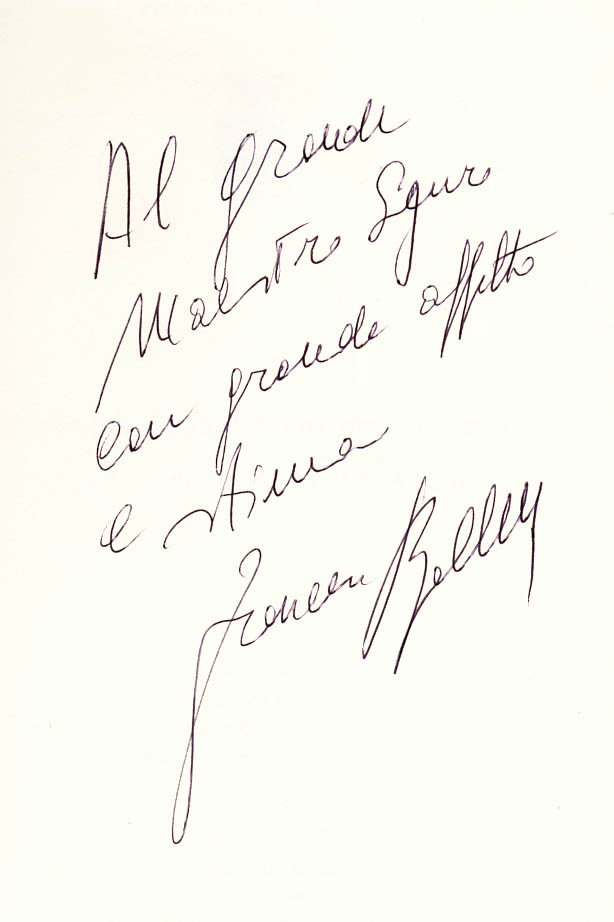 Al grande
Maestro Sguro
con grande affetto
e stima
Franca